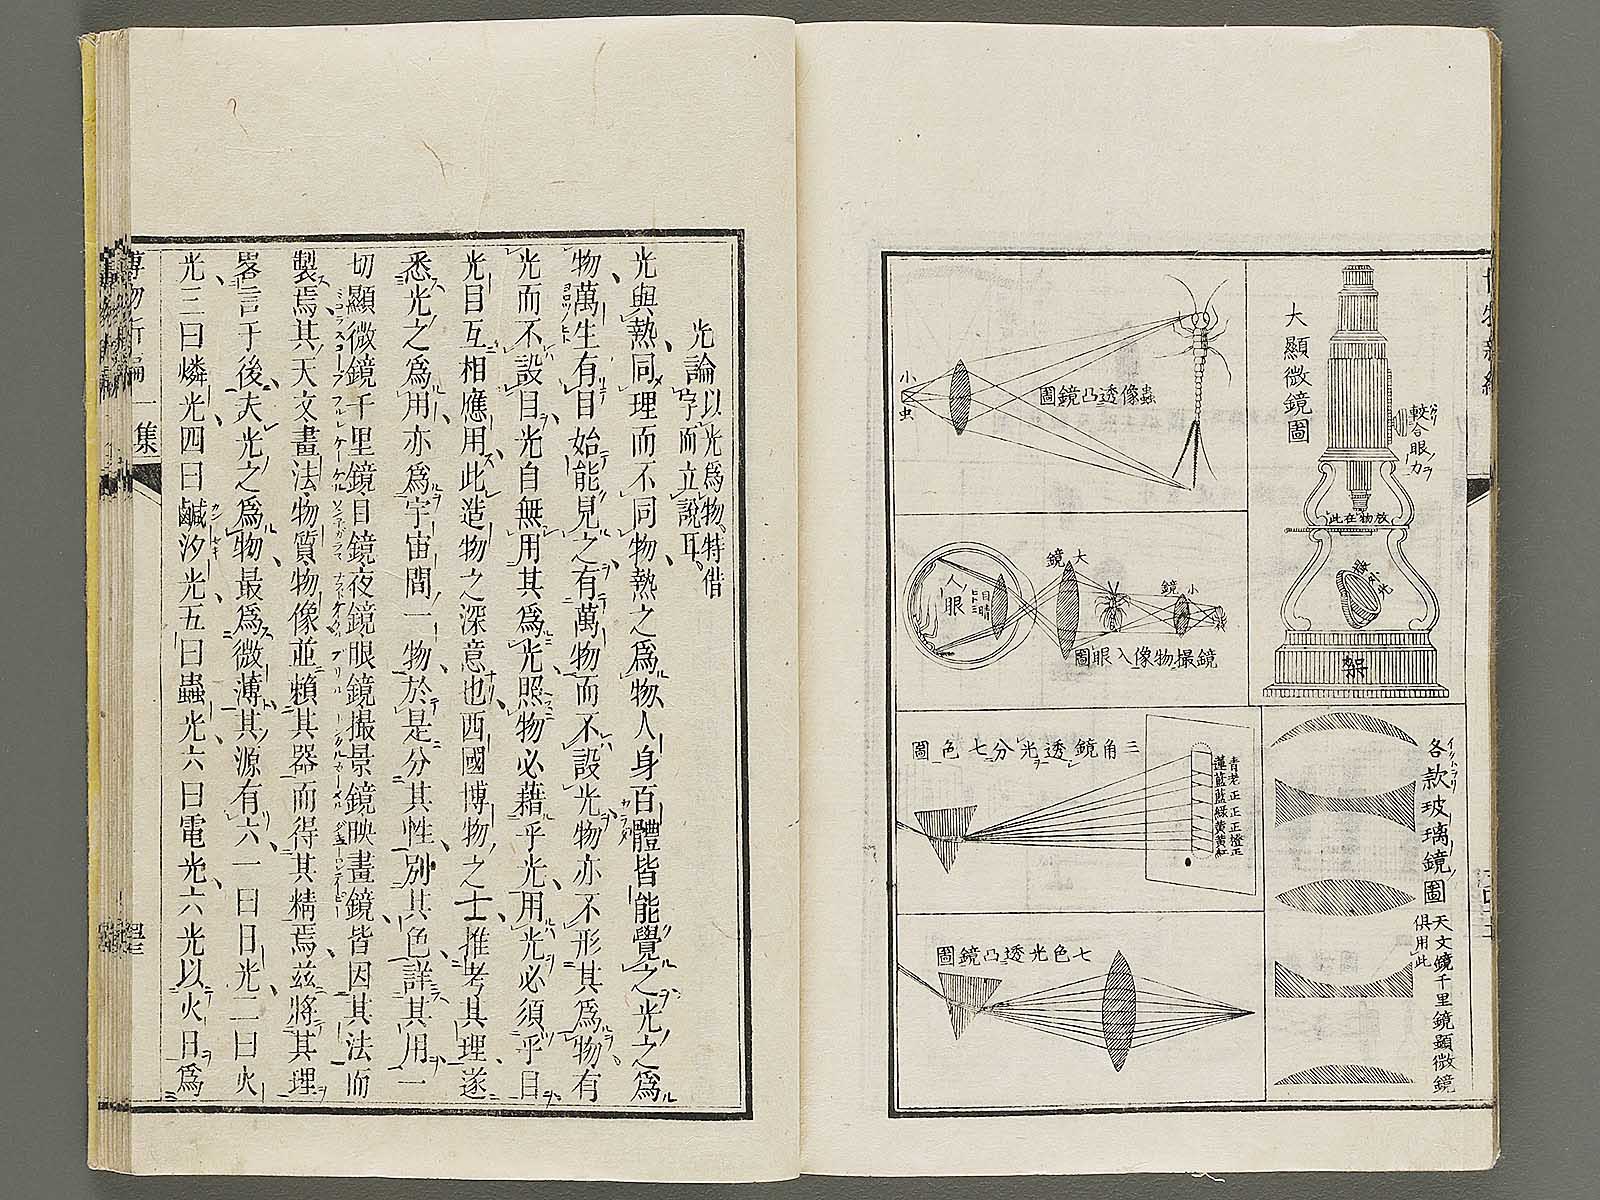 大顯微鏡圖
較合眼力
放物在此
接外光
架
各款玻璃鏡圖
天文鏡千里鏡顯微鏡
俱用此
蟲像透凸鏡圖
小虫
鏡撮物像入眼圖
小鏡
大鏡
目睛
人眼
三角鏡透光分七色圖
青蓮
老藍
正藍
正綠
正黃
橙黃
正紅
七色光透凸鏡圖
光論 以光爲物、特借
字而立說耳、
光與熱同理而不同物、熱之爲物、人身百體皆能覺之、光之爲
物、萬生有目、始能見之、有萬物而不設光、物亦不形其爲物、有
光而不設目、光自無用其爲光、照物必藉乎光、用光必須乎目、
光目互相應用、此造物之深意也、西國博物之士、推考其理、遂
悉光之爲用、亦爲宇宙間一物、於是分其性、別其色、詳其用、一
切顯微鏡千里鏡目鏡夜鏡眼鏡撮景鏡映畫鏡、皆因其法而
製焉、其天文畫法物質物像、並賴其器而得其精焉、茲將其理
畧言于後、夫光之爲物、最爲微薄、其源有六、一曰日光、二曰火
光、三曰燐光、四曰鹹汐光、五曰蟲光、六曰電光、六光以火日爲
博物新編 一集